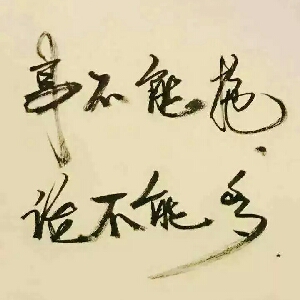 事不能拖
话不能多